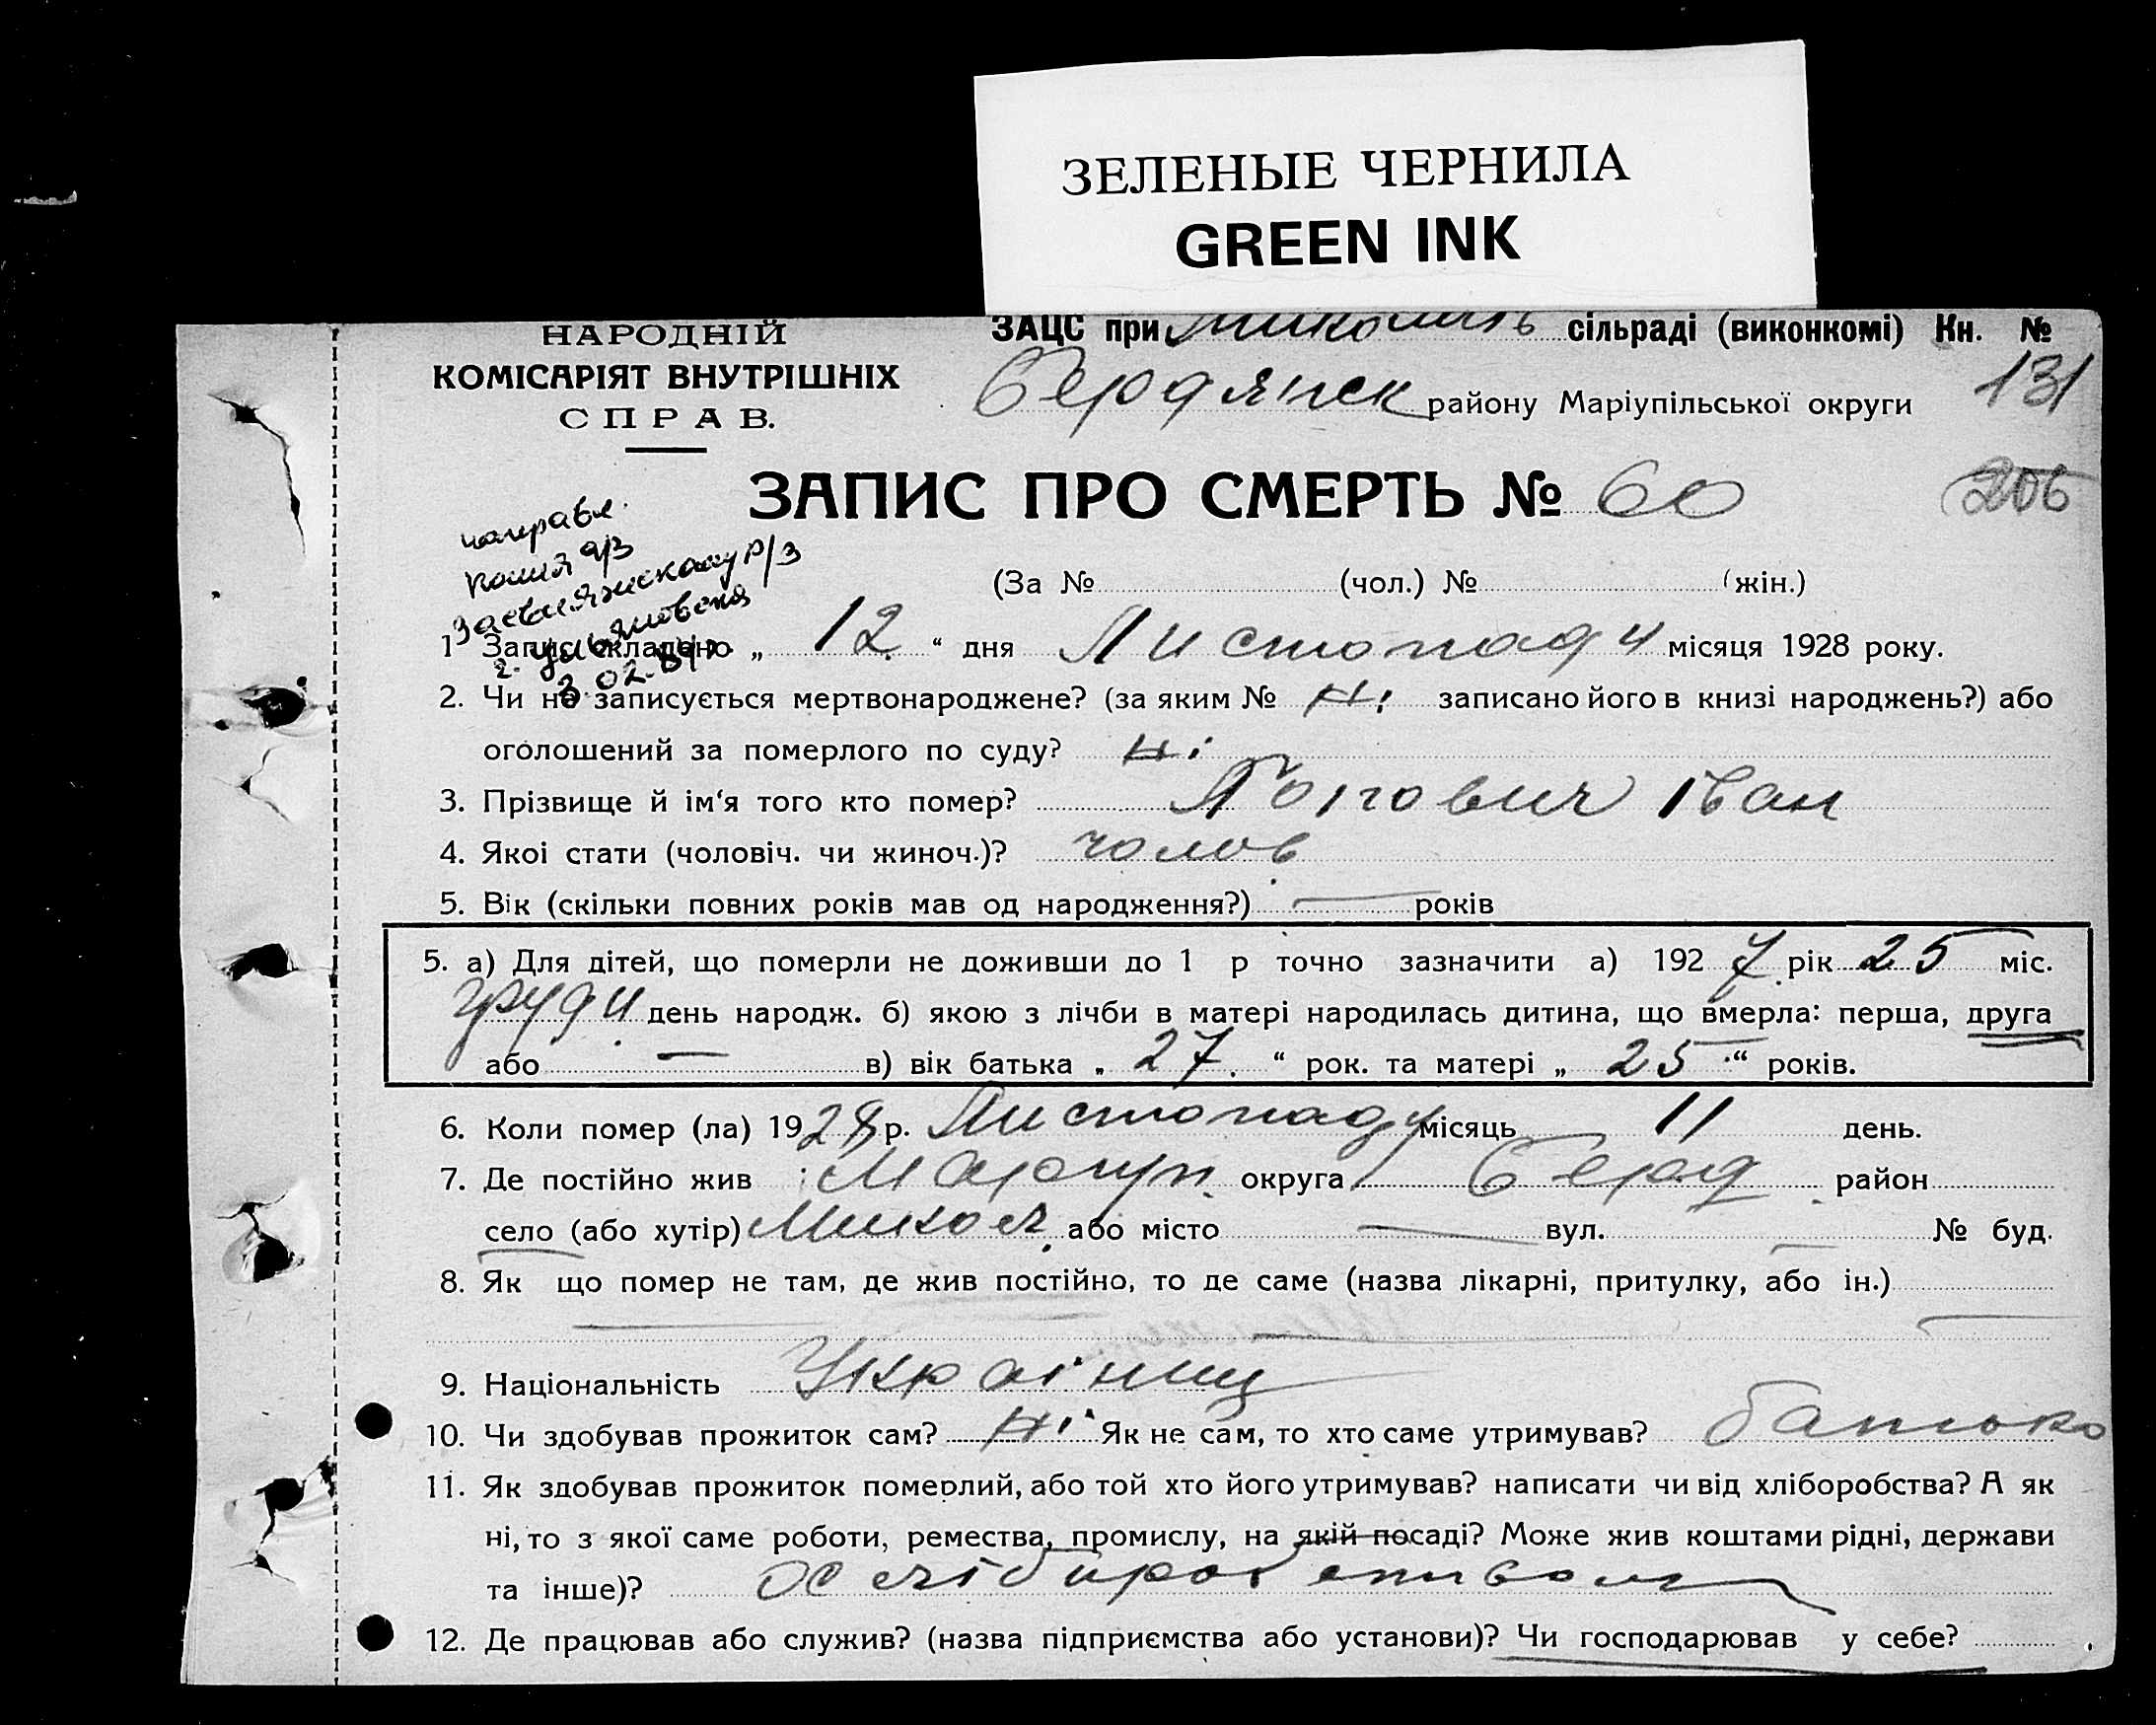 ЗЕЛЕНЫЕ ЧЕРНИЛА
GREEN INK
НАРОДНІЙ
КОМІСАРІЯТ ВНУТРІШНІХ
СПРАВ.
ЗАЦС при сільраді (виконкомі) Кн. №
Бердянск району Маріупільської округи 131
ЗАПИС ПРО СМЕРТЬ № 60 206
направл.
копия
г. Ульяновска
3.02.84г.
(За № (чол.) № (жін.)
1 Запис складено „ 12 “ дня Листопаду місяця 1928 року.
2. Чи не записується мертвонароджене? (за яким № Ні записано його в книзі народжень?) або
оголошений за померлого по суду? Ні
3. Прізвище й ім‘я того кто помер? Попович Іван
4. Якоі стати (чоловіч. чи жиноч.)? чолов
5. Вік (скільки повних років мав од народження?) — років
5. а) Для дітей, що померли не доживши до 1 р точно зазначити а) 1927 рік 25 міс.
груди день народж. б) якою з лічби в матері народилась дитина, що вмерла: перша, друга
або — в) вік батька „ 27. “ рок. та матері „ 25 “ років.
6. Коли помер (ла) 1928 р. Листопаду місяць 11 день.
7. Де постійно жив Маріуп. округа Берд. район
село (або хутір) Микол. або місто — вул. — № буд.
8. Як що помер не там, де жив постійно, то де саме (назва лікарні, притулку, або ін.)
9. Національність Українец
10. Чи здобував прожиток сам? Ні Як не сам, то хто саме утримував? батько
11. Як здобував прожиток померлий, або той хто його утримував? написати чи від хліборобства? А як
ні, то з якої саме роботи, ремества, промислу, на якій посаді? Може жив коштами рідні, держави
та інше)? Хлібороб ством
12. Де працював або служив? (назва підприємства або установи)? Чи господарював у себе?